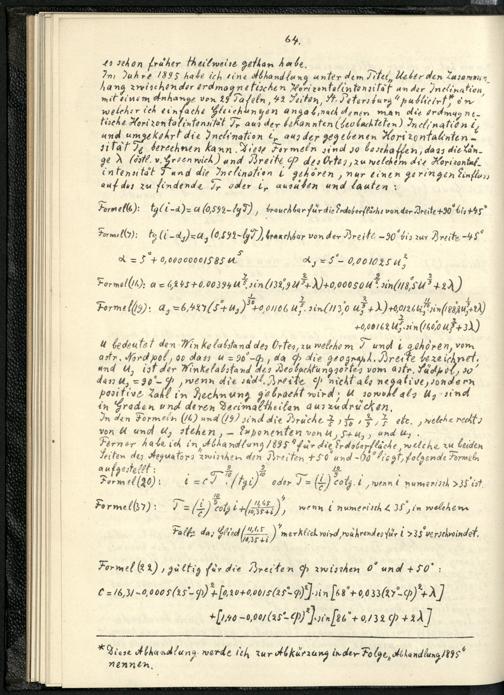 64.
es schon früher theilweise gethan habe.
Im Jahre 1895 habe ich eine Abhandlung unter dem Titel „Ueber den Zusammen-
hang zwischen der erdmagnetischen Horizontalintensität und der Inclination,
mit einem Anhange von 29 Tafeln, 42 Seiten, St. Petersburg" publicirt*, in
welcher ich einfache Gleichungen angab, nach denen man die erdmagne-
tische Horizontalintensität Tr aus der bekannten (beobachteten) Inclination i,
und umgekehrt die Inclination ir aus der gegebenen Horizontalinten-
sität T berechnen kann. Diese Formeln sind so beschaffen, dass die Län-
ge λ (östl. v. Greenwich) und Breite φ des Ortes, zu welchem die Horizontal-
intensität T und die Inclination i gehören, nur einen geringen Einfluss
auf das zu findende Tr oder ir ausüben und lauten:
Formel(6): tg(i-α)=a(0,592-lgT), brauchbar für die Erdoberfläche von der Breite +90° bis +45°
Formel(7): tg(i-α₃)=a₃(0,592-lgT), brauchbar von der Breite -90° bis zur Breite -45°
α = 5°+0,0000001585u⁵ α₃ = 5°-0,001025u₃²
Formel(16): a=6,245+0,00394u
Formel(19): a₃=6,427(5°+u₃)
u bedeutet den Winkelabstand des Ortes, zu welchem T und i gehören, vom
astr. Nordpol, so dass u = 90°-φ, da φ die geograph. Breite bezeichnet,
und u₃ ist der Winkelabstand des Beobachtungsortes vom astr. Südpol, so
dass u₃=90°-φ, wenn die südl. Breite φ nicht als negative, sondern
positive Zahl in Rechnung gebracht wird; u sowohl als u₃ sind
in Graden und deren Decimaltheilen auszudrücken.
In den Formeln (16) und (19) sind die Brüche etc., welche rechts
von u und u₃ stehen, – Exponenten von u, 5+u₃, und u₃.
Ferner habe ich in Abhandlung 1895* für die Erdoberfläche, welche zu beiden
Seiten des Aequators zwischen den Breiten +50° und -60° liegt, folgende Formeln
aufgestellt:
Formel(20): oder wenn i numerisch >35° ist.
Formel(37): wenn i numerisch < 35°, in welchem
Falle das Glied merklich wird, während es für i >35° verschwindet.
Formel(22), gültig für die Breiten φ zwischen 0° und +50°:
C=16,31-0,0005(25°-φ)²+[0,20+0,0015(25°-φ)²].sin[68°+0,033(27°-φ)²+λ]
+[1,40-0,001(25°-φ)²].sin[86°+0,132φ+2λ]
* Diese Abhandlung werde ich zur Abkürzung in der Folge „Abhandlung 1895"
nennen.